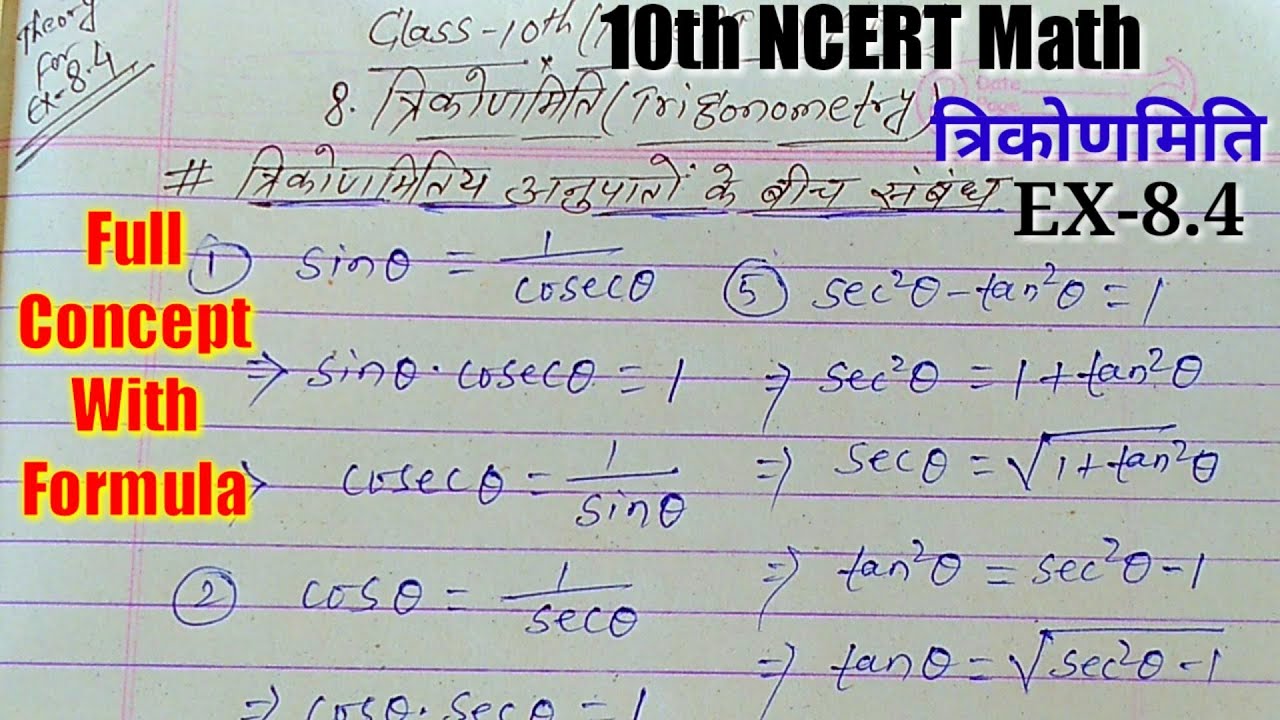 Theory
For
EX-8.4
Class-10th (
10th NCERT Math
8. त्रिकोणमिति (Trigonometry)
Date
Page
त्रिकोणमिति
EX-8.4
# त्रिकोणमितिय अनुपातों के बीच संबंध
Full
Concept
With
Formula
① sinθ = 1/cosecθ
⇒ sinθ·cosecθ = 1
⇒ cosecθ = 1/sinθ
② cosθ = 1/secθ
⇒ cosθ·secθ = 1
⑤ sec²θ-tan²θ = 1
⇒ sec²θ = 1+tan²θ
⇒ secθ = √(1+tan²θ)
⇒ tan²θ = sec²θ-1
⇒ tanθ = √(sec²θ-1)